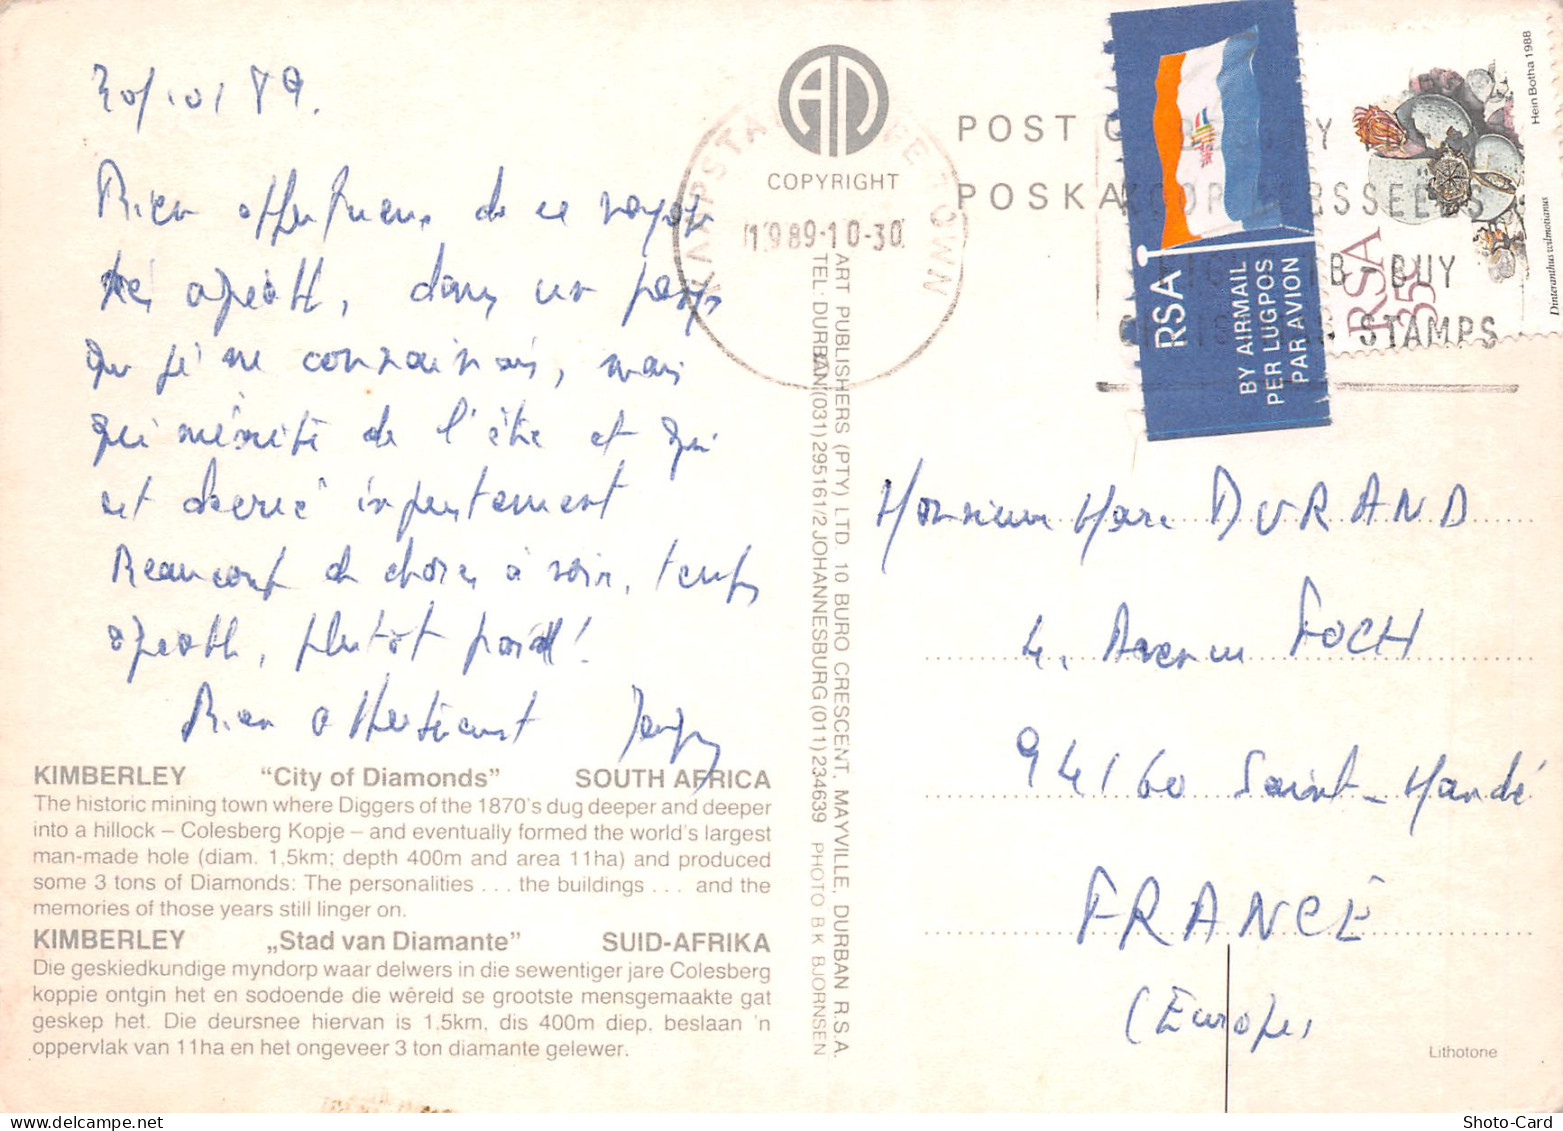 30/10/89.
Bien affectueux de ce voyage
très agréable, dans un pays
que je ne connaissais, mais
qui mérite de l'être et qui
est décrié injustement
Beaucoup de choses à voir, temps
agréable, plutôt froid!
Bien affectueusement
KIMBERLEY "City of Diamonds" SOUTH AFRICA
The historic mining town where Diggers of the 1870's dug deeper and deeper
into a hillock – Colesberg Kopje – and eventually formed the world's largest
man-made hole (diam. 1,5km; depth 400m and area 11ha) and produced
some 3 tons of Diamonds: The personalities . . . the buildings . . . and the
memories of those years still linger on.
KIMBERLEY „Stad van Diamante" SUID-AFRIKA
Die geskiedkundige myndorp waar delwers in die sewentiger jare Colesberg
koppie ontgin het en sodoende die wêreld se grootste mensgemaakte gat
geskep het. Die deursnee hiervan is 1.5km, dis 400m diep, beslaan 'n
oppervlak van 11ha en het ongeveer 3 ton diamante gelewer.
COPYRIGHT
ART PUBLISHERS (PTY) LTD. 10 BURO CRESCENT, MAYVILLE, DURBAN R.S.A.
TEL: DURBAN (031) 295161/2 JOHANNESBURG (011) 234639 PHOTO B K BJORNSEN
KAAPSTAD CAPE TOWN
1989-10-30
POST
POSKA
BUY
STAMPS
RSA
BY AIRMAIL
PER LUGPOS
PAR AVION
RSA
35c
Hein Botha 1988
Dinteranthus wilmotianus
Monsieur Marc DURAND
4, Avenue FOCH
94160 Saint-Mandé
FRANCE
(Europe)
Lithotone
Shoto-Card